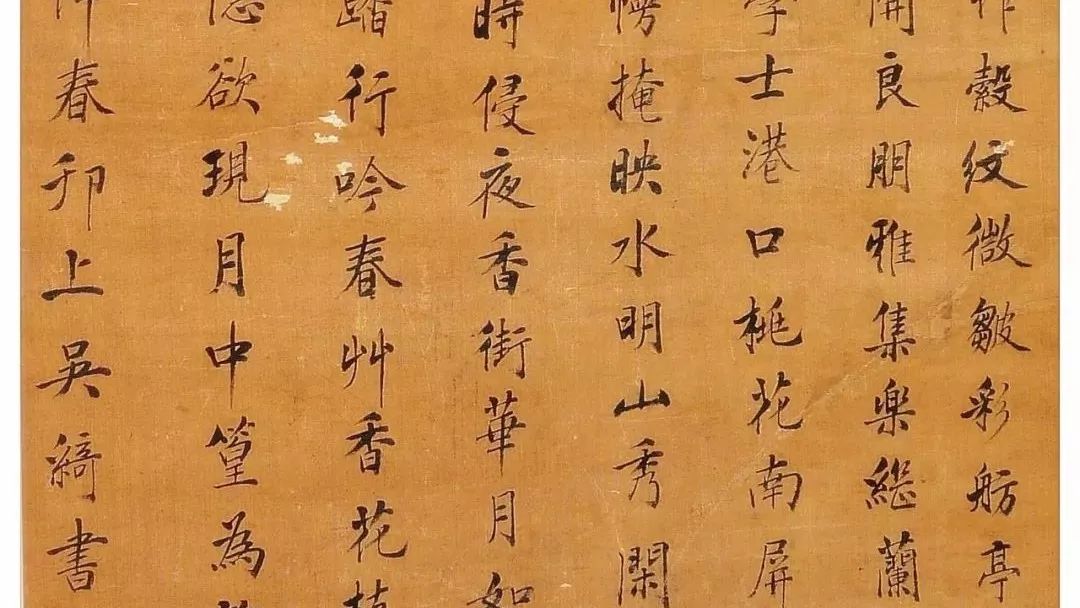 縠紋微皺彩舫亭
開良朋雅集樂繼蘭
學士港口桃花南屏
幌掩映水明山秀閑
時侵夜香街華月如
踏行吟春艸香花
欲現月中篁為
春卯上吳綺書